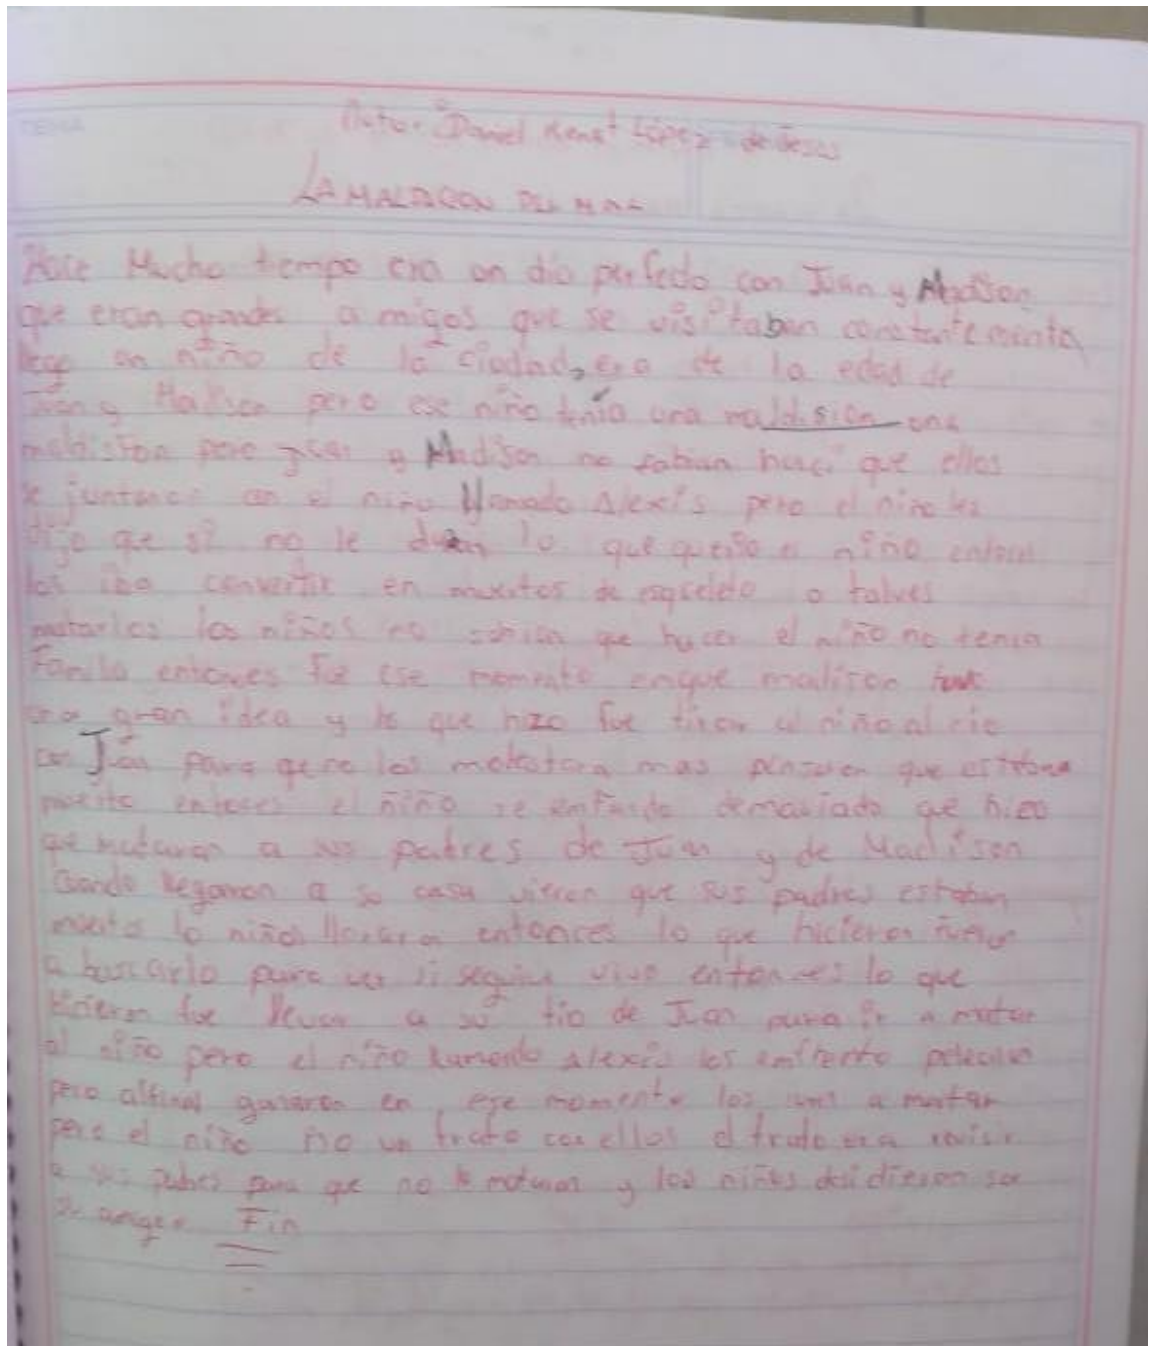 Autor. Daniel López de Jesus
LA MALDICION DEL
Hace Mucho tiempo era un dia perfecto con Juan y Madison
que eran grandes amigos que se visitaban constantemente
llego un niño de la ciudad, era de la edad de
Juan y Madison pero ese niño tenía una maldision una
maldision pero y Madison no sabian haci que ellos
se juntaron con el niño llamado Alexis pero el niño les
dijo que si no le davan lo que queria el niño
los iba convertir en muertos de esqueleto o talves
matarlos los niños no sabian que hacer el niño no tenia
Familia entonces fue ese momento enque madison tuvo
una gran idea y lo que hizo fue tirar al niño al rio
con Juan para que no los molestara mas que estaba
muerto entoces el niño se enfurdo demaciado que hizo
que mataran a sus padres de Juan y de Madison
Cuando llegaron a su casa vieron que sus padres estaban
muertos lo niños lloraron entonces lo que hicieron
a buscarlo para ver si seguia vivo entonces lo que
hicieron fue llevar a su tio de Juan para ir a matar
al niño pero el niño llamado Alexis les enfrento
pero alfinal ganaron en ese momento los a matar
pero el niño un trato con ellos el trato era
a sus padres para que no lo mataran y los niños decidieron ser
Fin